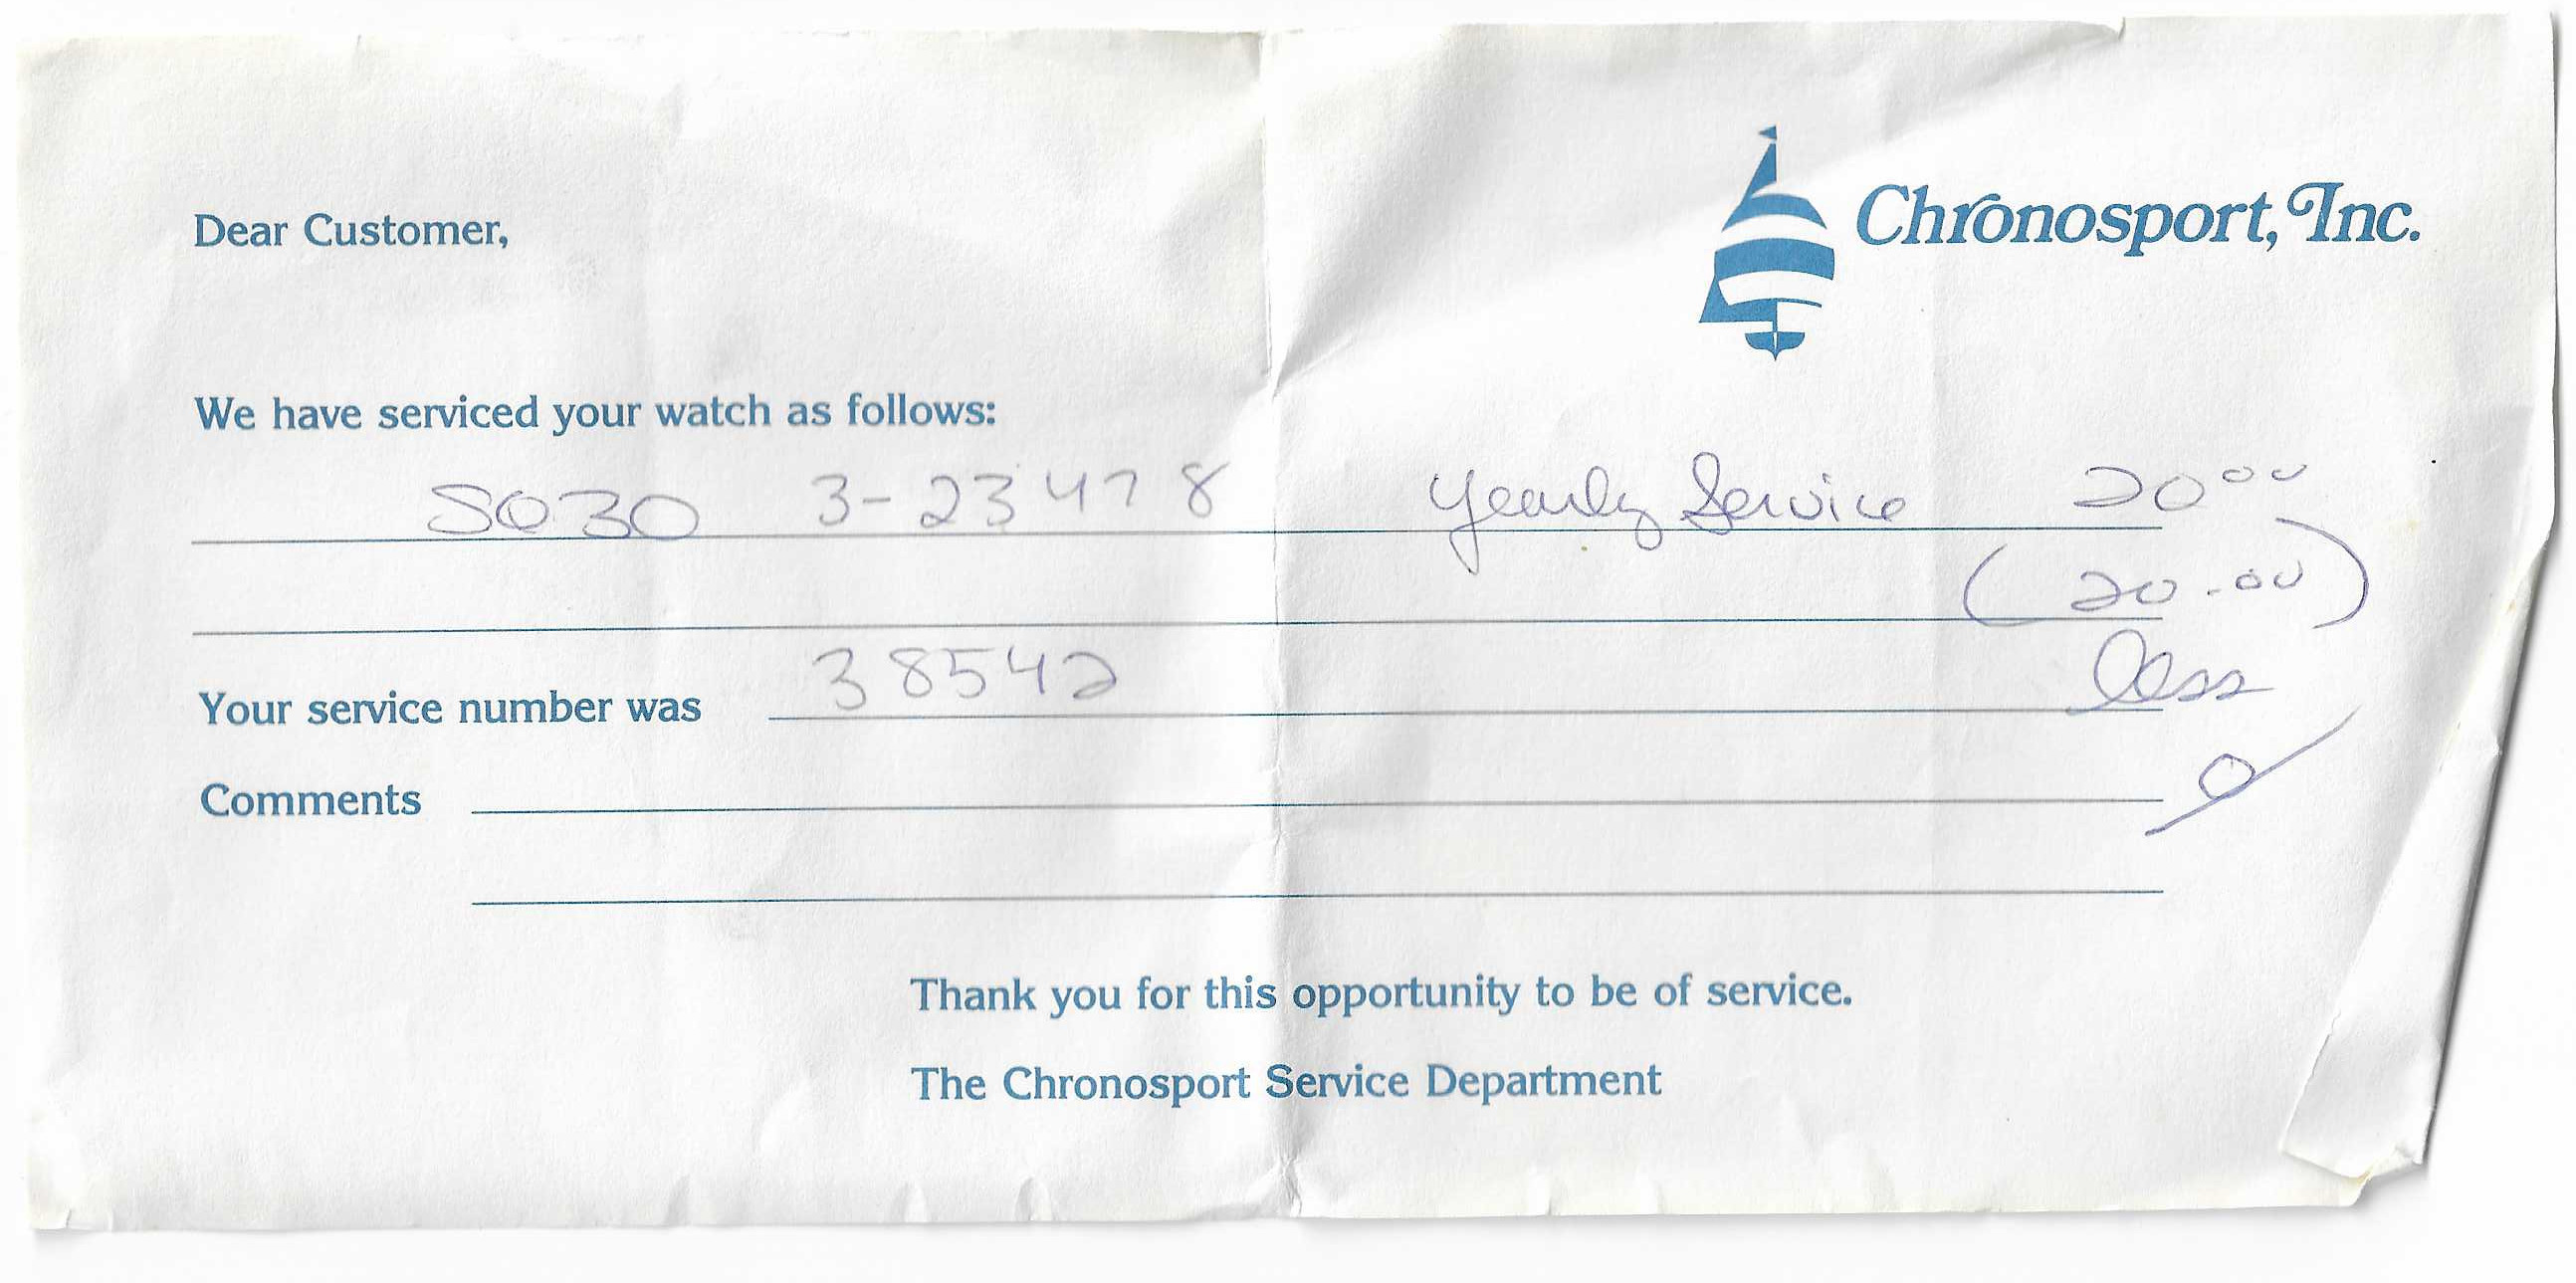 Chronosport, Inc.
Dear Customer,
We have serviced your watch as follows:
SQ30 3-23478 Yearly Service 20.00
(20.00)
Your service number was 38542 less
0
Comments
Thank you for this opportunity to be of service.
The Chronosport Service Department